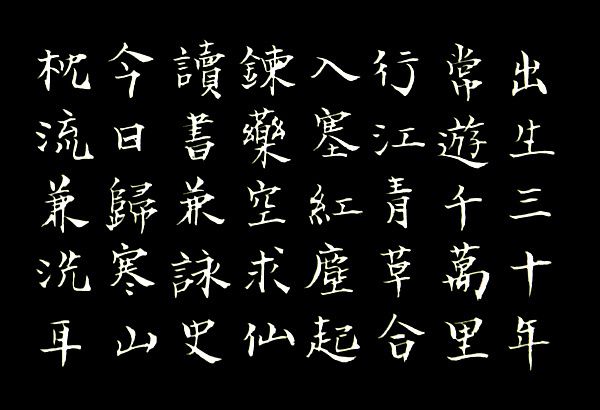 出生三十年
常遊千萬里
行江青草合
入塞紅塵起
鍊藥空求仙
讀書兼詠史
今日歸寒山
枕流兼洗耳